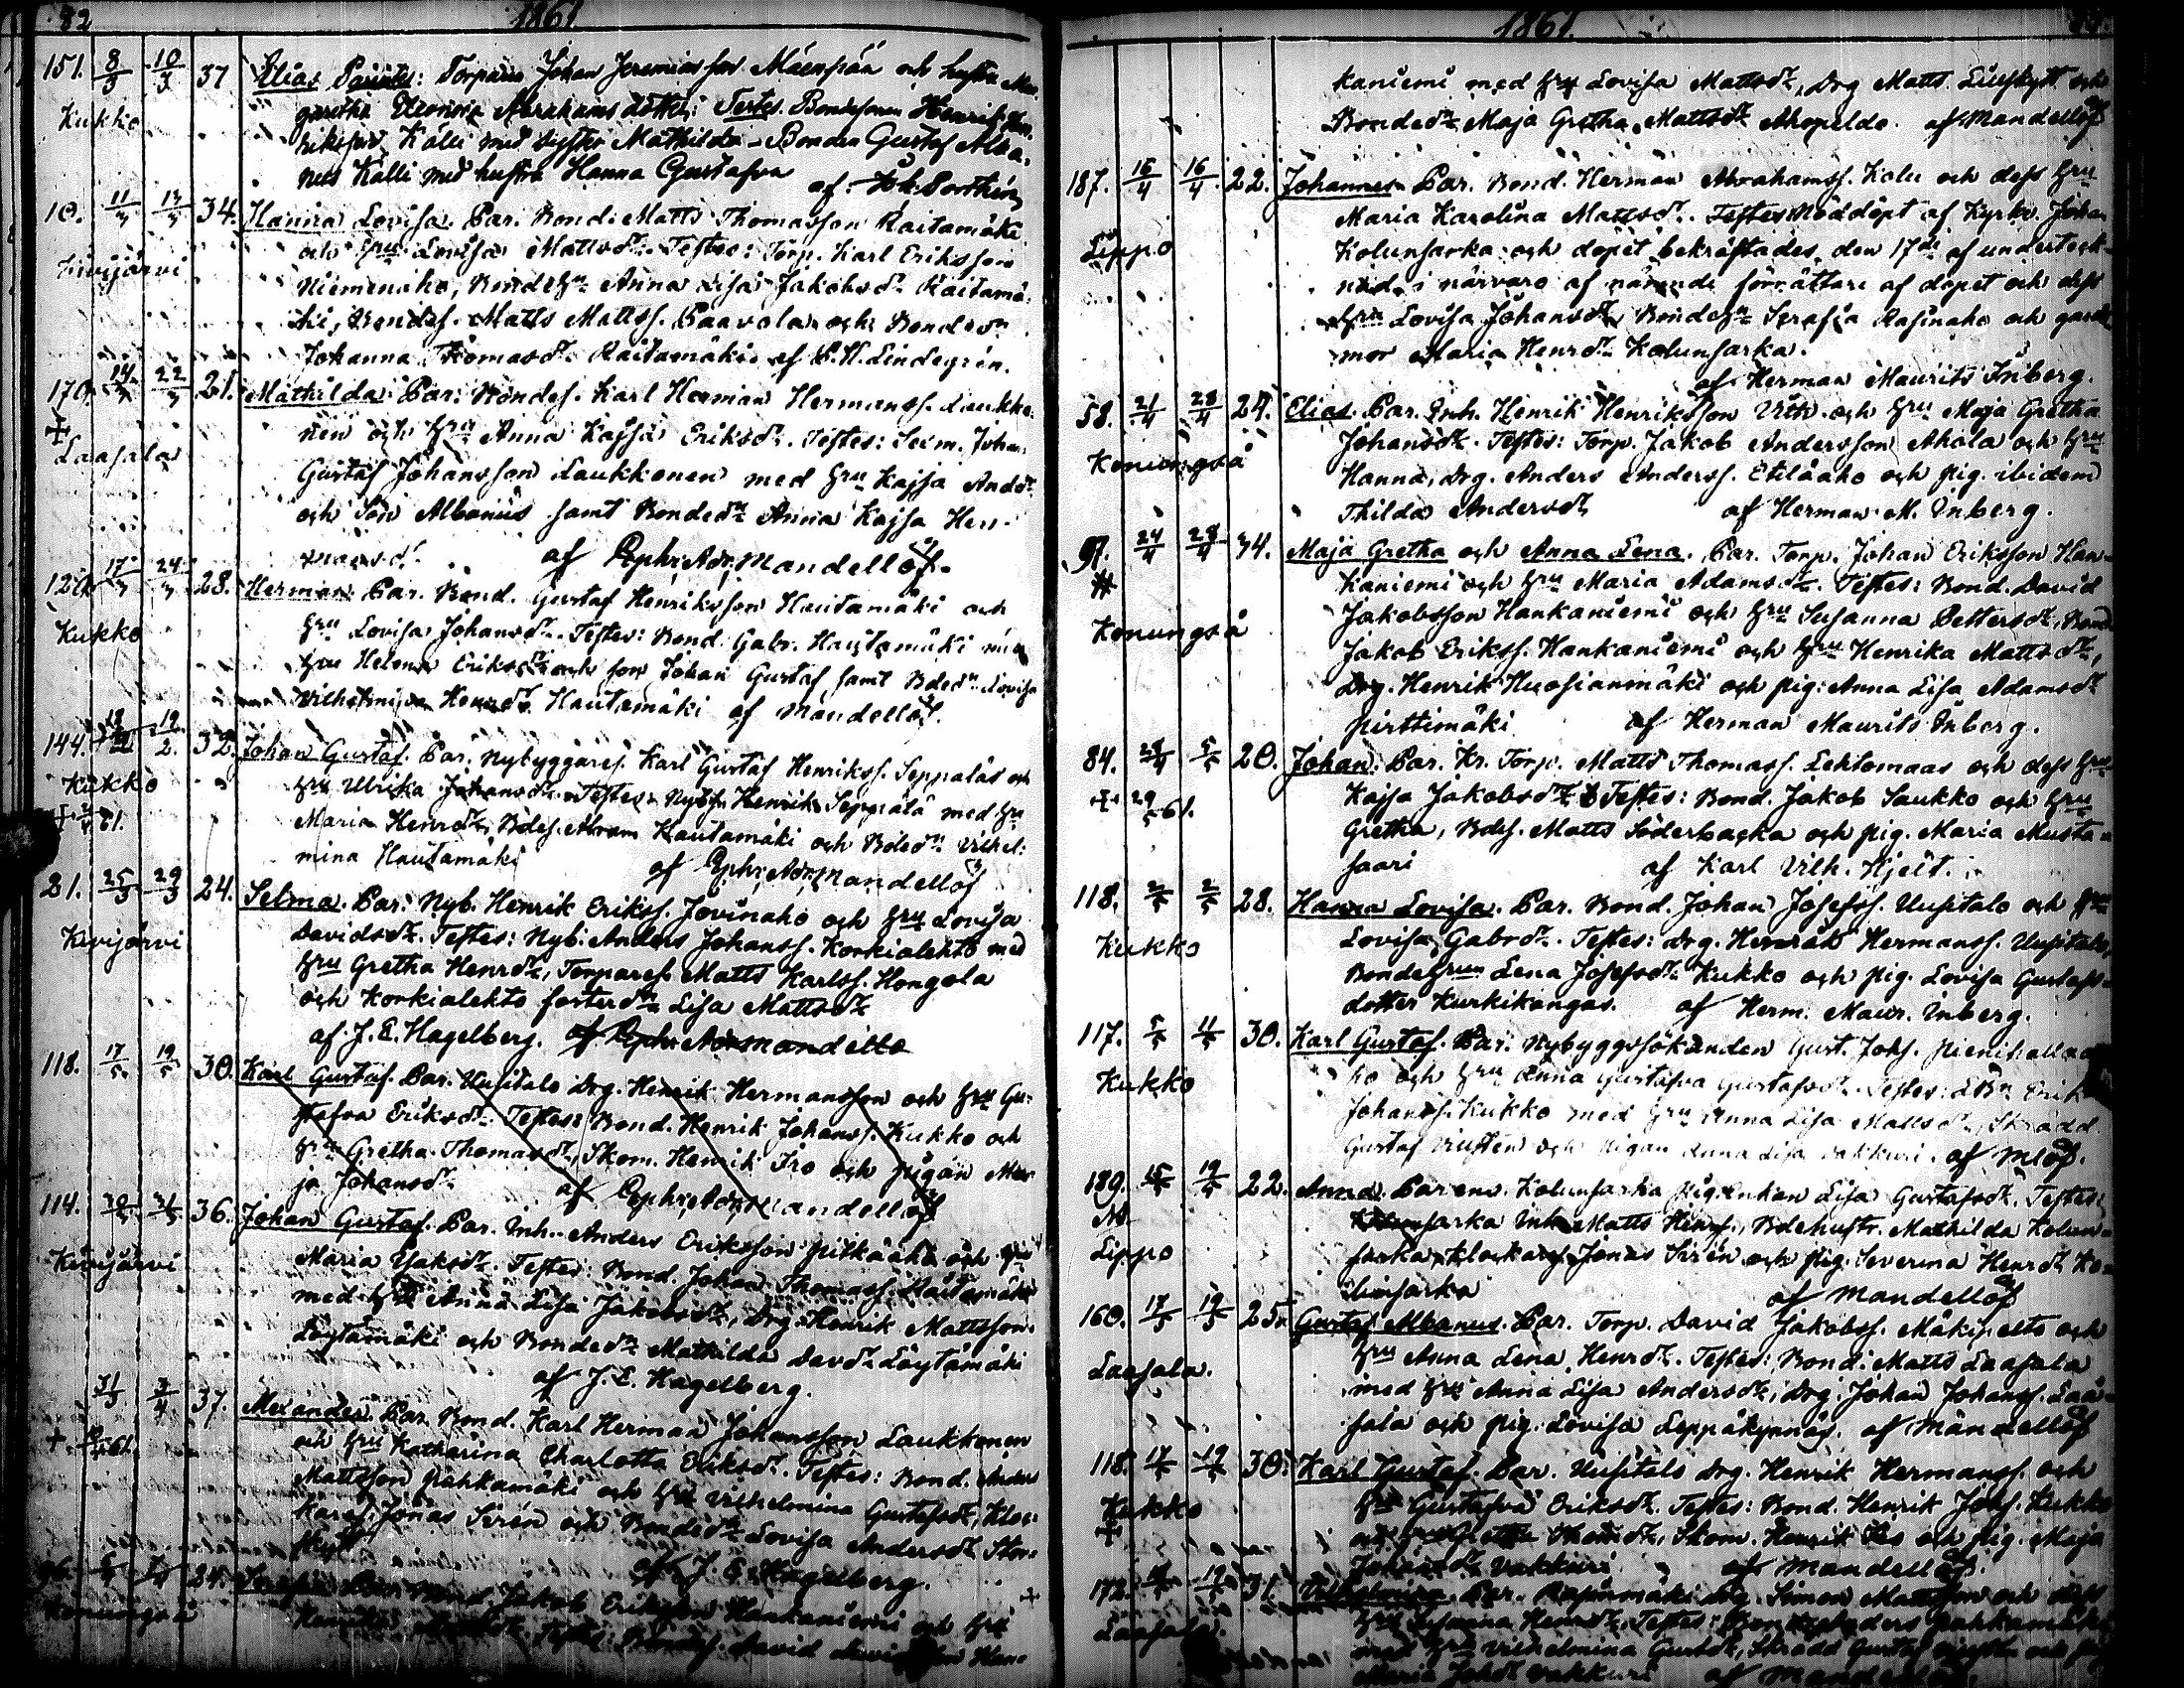 82 1861.
151. 8/3 10/3 37 Elias Parentes: Torparen Johan Jeremiasson Mäenpää och hustru Mar-
garetha Eleonora Abrahamsdotter; Testes. Bondesonen Henrik Hen-
Kukko
riksson Källi med syster Mathilda - Bonden Gustaf Alba-
nus Källi med hustru Hanna Gustafva af
10. 34. Hanna Lovisa. Par. Bond. Matts Thomasson Raitamäki
och hru Lovisa Mattsdr. Testes: Torp. Karl Eriksson
Kivijärvi
Niemenaho, Bondehu Anna Lisa Jakobsdr Raitamä-
ki, Bondes. Matts Mattss. Paavola och Bondedn
Johanna Thomasdr Raitamäki af Lindegrén.
170. 22/3 21. Mathilda Par: Bondes. Karl Herman Hermanss. Laukko-
+
nen och hru Anna Kajsa Eriksdr. Testes: Johan
Laasala
Gustaf Johansson Laukkonen med hru Kajsa Andd
och Son Albanus samt Bondedn Anna Kajsa Her-
mansdr. af Ephr. Adr. Mandellöf.
120. 17/3 24/3 28. Herman Par. Bond. Gustaf Henriksson Hautamäki och
Kukko
hru Lovisa Johansdr. Testes: Bond. Gabr. Hautamäki med
hru Helena Eriksdr och son Johan Gustaf samt Bdedn Lovisa
Vilhelmina Henrdr Hautamäki af Mandellöf.
144. 32. Johan Gustaf. Par. Nybyggares. Karl Gustaf Henrikss. Seppälä och
Kukko
hru Ulrika Johansdr. Testes: Nyb. Henrik Seppälä med hru
+ 61.
Maria Henrdr, Bdes. Abram Hautamäki och Bdedn Vilhel-
mina Hautamäki af Ephr. Adr. Mandellöf
21. 25/3 29/3 24. Selma. Par. Nyb. Henrik Erikss. Jovinaho och hru Lovisa
Davidsdr. Testes: Nyb. Anders Johanss. Korkialehto med
Kivijärvi
hru Gretha Henrdr, Torpares. Matts Karlss. Hongola
och Korkialehto fosterdn Lisa Mattsdr
af J. E. Hagelberg. af Ephr. Adr. Mandellö
118. 17/5 19/5 30. Karl Gustaf. Par. Uusitalo Drg. Henrik Hermansson och hru Gu-
stafva Eriksdr. Testes: Bond. Henrik Johanss. Kukko och
hru Gretha Thomasdr, Skom. Henrik Iro och pigan Ma-
ja Johansdr. af Ephr. Adr. Mandellöf
114. 30/3 31/3 36. Johan Gustaf. Par. Inh. Anders Eriksson Pitkäaho och hru
Maria Isaksdr. Testes: Bond. Johan Thomass. Raitamäki
Kivijärvi
med hru Anna Lisa Jakobsdr, Drg. Henrik Mattsson
Löytämäki och Bondedn Mathilda Davdr Löytämäki
af J. E. Hagelberg.
31/3 37. Alexander. Par. Bond. Karl Herman Johansson Laukkonen
+ 61.
och hru Katharina Charlotta Eriksdr. Testes: Bond. Anders
Mattsson Pahkamäki och hru Vilhelmina Gustafsdr, Kloc-
kares. Jonas Sirén och Bondedn Lovisa Andersdr Stor-
skytt af J. E. Hagelberg.
96. 24. Serafia Par. Bond. Jakob Eriksson Hankaniemi och hru
Konungså
Henrika Mattsdr. Testes: Bondes. David Han-
1861.
kaniemi med hru Lovisa Mattsdr, Drg Matts Lillskytt och
Bondedn Maja Gretha Mattsdr Ahopelto. af Mandellöf
187. 15/4 16/4 22. Johannes Par. Bond. Herman Abrahamss. Kolu och dess hru
Maria Karolina Mattsdr. Testes: Nöddöpt af Kyrkv. Johan
Lippo
Kolunsarka och döpet bekräftades den 17de af underteck-
nad i närvaro af nämnde förrättare af döpet och dess
hru Lovisa Johansdr, Bondehu Serafia Rasinaho och gards-
mor Maria Henrdr Kolunsarka.
af Herman Maurits Inberg.
58. 21/4 28/4 24. Elias. Par. Inh. Henrik Henriksson Vilk och hru Maja Gretha
Johansdr. Testes: Torp. Jakob Andersson Ahola och hru
Konungså
Hanna, Drg. Anders Anderss. Eteläaho och pig. ibidem
Thilda Andersdr af Herman M. Inberg.
97. 24/4 28/4 34. Maja Gretha och Anna Lena. Par. Torp. Johan Eriksson Han-
kaniemi och hru Maria Adamsdr. Testes: Bond. David
Konungså
Jakobsson Hankaniemi och hru Susanna Pettersdr, Bond.
Jakob Erikss. Hankaniemi och hru Henrika Mattsdr,
Drg. Henrik Huosianmäki och pig. Anna Lisa Adamsdr
Pirttimäki af Herman Maurits Inberg.
84. 5/5 20. Johan. Par. Kr. Torp. Matts Thomass. Lehtomaas och dess hru
+ 29/5 61.
Kajsa Jakobsdr Testes: Bond. Jakob Saukko och hru
Gretha, Bdes. Matts Söderbacka och pig. Maria Musta-
saari af Karl Vilh. Hjelt.
118. 2/5 2/5 28. Hanna Lovisa. Par. Bond. Johan Josefss. Uusitalo och hru
Lovisa Gabrdr. Testes: Drg. Henrik Hermanss. Uusitalo,
Kukko
Bondehrun Lena Josefsdr Kukko och pig. Lovisa Gustafs-
dotter Kurkikangas. af Herm. Maur. Inberg.
117. 5/5 11/5 30. Karl Gustaf. Par. Nybyggssökanden Gust. Johs. Pienihallaa-
ho och hru Anna Gustafva Gustafsdr. Testes: Erik
Kukko
Johanss. Kukko med hru Anna Lisa Mattsdr, Skrädd.
Gustaf och Pigan Anna Lisa Vakkuri. af Mlöf.
189. 15/5 19/5 22. Anna. Parens. Kolunsarka pig. enkan Lisa Gustafsdr. Testes:
Kolunsarka Inh. Matts Henrs., Bdehustr. Mathilda Kolun-
Lippo
sarka, Klockars. Jonas Sirén och pig. Severina Henrdr Ko-
lunsarka af Mandellöf
160. 17/5 19/5 25. Gustaf Albanus. Par. Torp. David Jakobss. Mäkipelto och
hru Anna Lena Henrdr. Testes: Bond. Matts Laasala
Laasala.
med hru Anna Lisa Andersdr, Drg. Johan Johanss. Laa-
sala och pig. Lovisa Leppäkynnäs. af Mandellöf
118. 17/5 19/5 30. Karl Gustaf. Par. Uusitalo Drg. Henrik Hermanss. och
hru Gustafva Eriksdr. Testes: Bond. Henrik Johs. Kukko
Kukko
+
och hru Gretha Thomdr, Skom. Henrik Iro och pig. Maja
Johansdr Vakkuri af Mandellöf.
172. 31. Vilhelmina. Par. Drg. Simon Mattsson och dess
hru Susanna Henrdr. Testes: Bond. Anders Pahkamäki
Laasala.
med hru Vilhelmina Gustdr, Skrädd Gustaf och
Maria Johdr Vakkuri af Mandellöf.